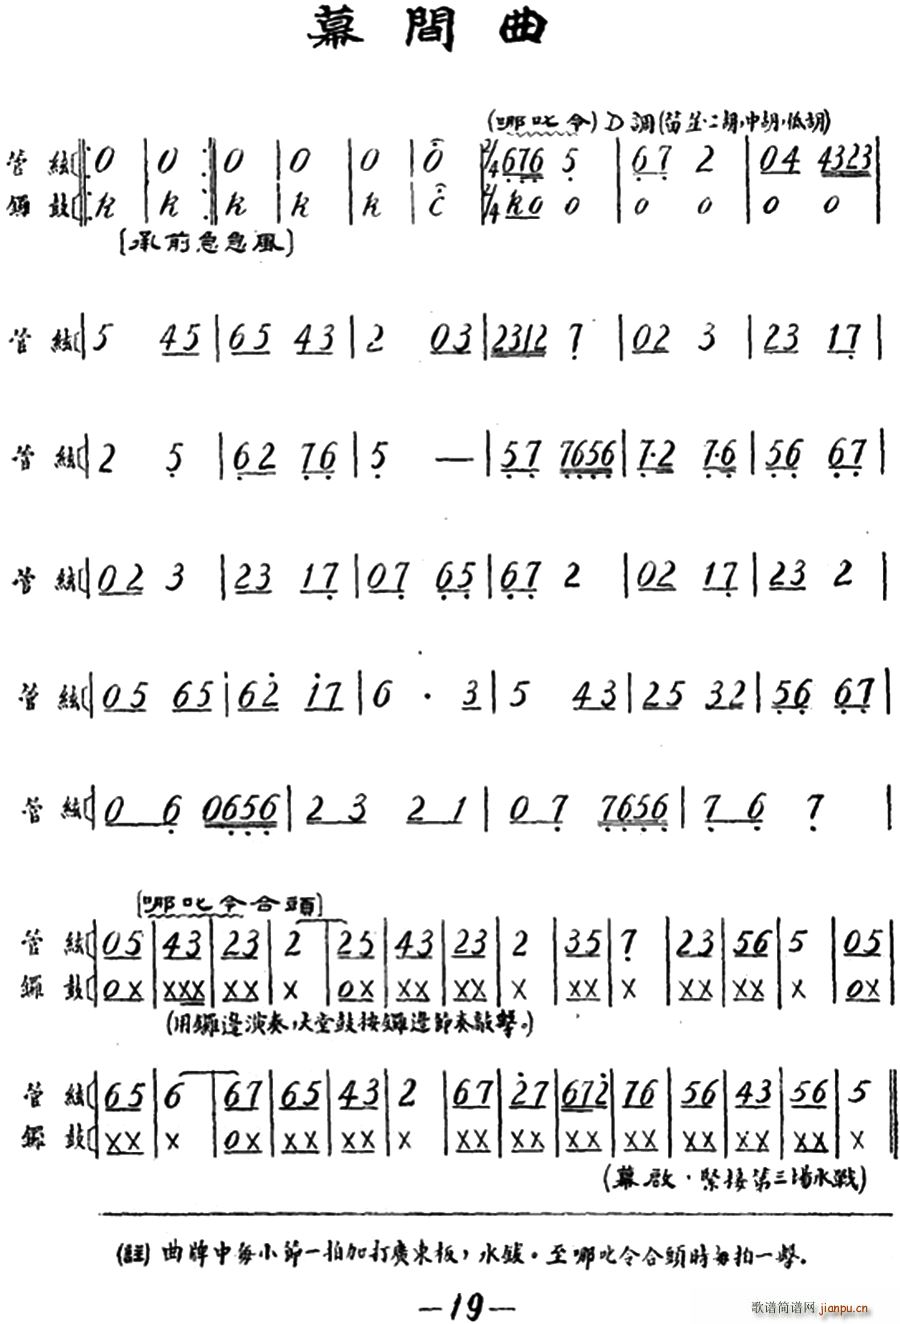 幕間曲
(哪吒令) D調(笛笙·二胡,中胡,低胡)
管絃 0 | 0 | 0 | 0 | 0 | 0 | 2/4 676 5 | 67 2 | 04 4323 |
鑼鼓 k | k | k | k | k | c | 2/4 k0 0 | 0 0 | 0 0 |
[承前急急風]
管絃 5 45 | 65 43 | 2 03 | 2312 7 | 02 3 | 23 17 |
管絃 2 5 | 62 76 | 5 — | 57 7656 | 7·2 7·6 | 56 67 |
管絃 02 3 | 23 17 | 07 65 | 67 2 | 02 17 | 23 2 |
管絃 05 65 | 62 17 | 6 · 3 | 5 43 | 25 32 | 56 67 |
管絃 0 6 0656 | 2 3 2 1 | 0 7 7656 | 7 6 7 |
[哪吒令合頭]
管絃 05 | 43 | 23 | 2 | 25 | 43 | 23 | 2 | 35 | 7 | 23 | 56 | 5 | 05 |
鑼鼓 0X | XXX | XX | X | 0X | XX | XX | X | XX | X | XX | XX | X | 0X |
(用鑼邊演奏,大堂鼓按鑼邊節奏敲擊。)
管絃 65 | 6 | 67 | 65 | 43 | 2 | 67 | 27 | 672 | 76 | 56 | 43 | 56 | 5
鑼鼓 XX | X | 0X | XX | XX | X | XX | XX | XX | XX | XX | XX | XX | X
(幕啟·緊接第三場水戰)
(註) 曲牌中每小節一拍加打廣東板,水鈸。至哪吒令合頭時每拍一擊.
—19—
歌谱简谱网 jianpu.cn